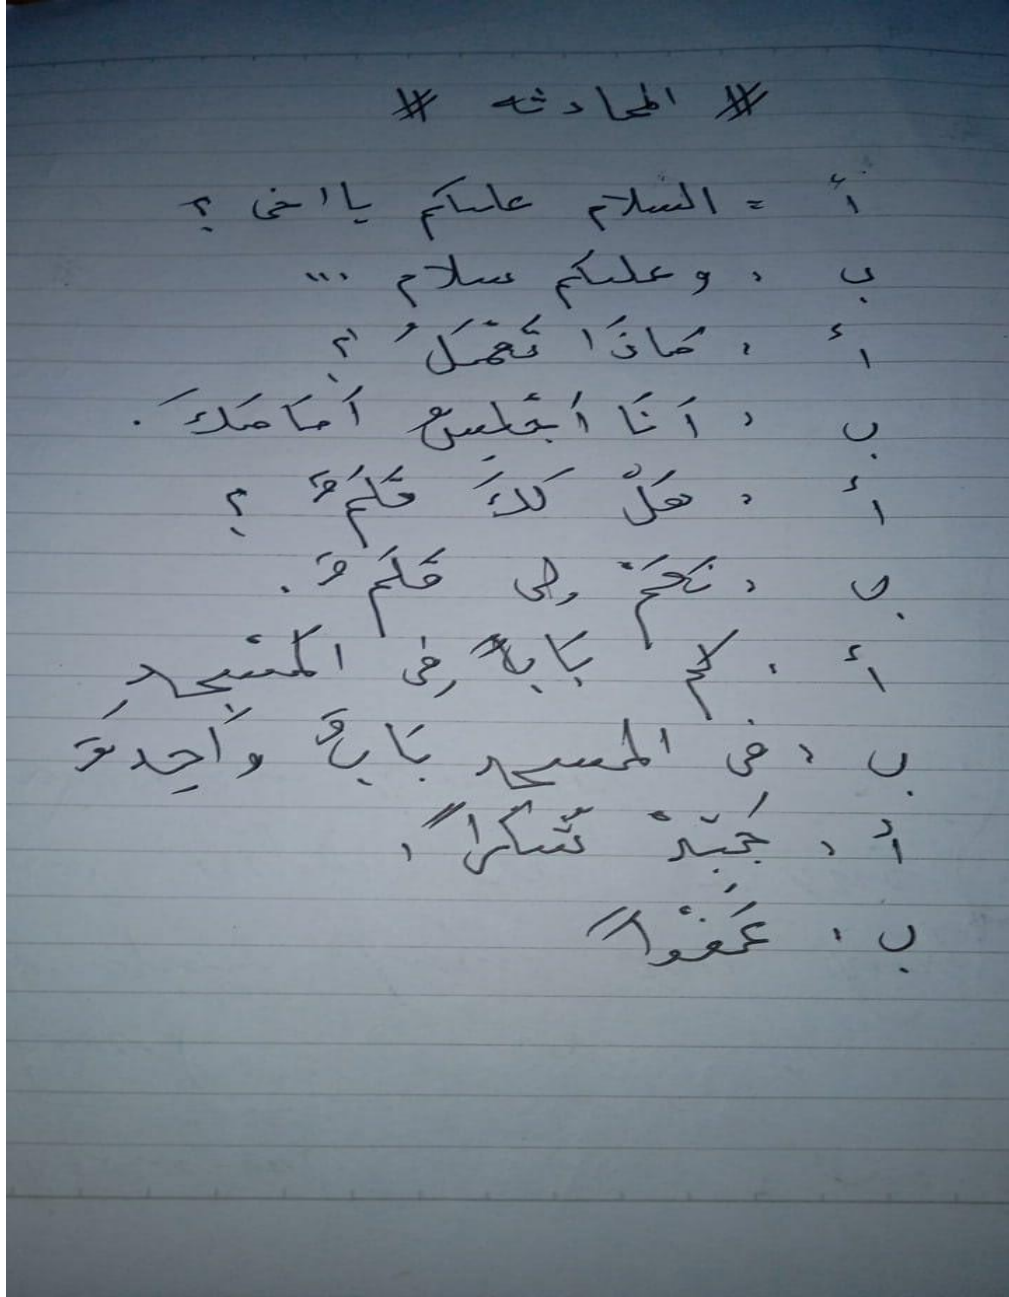 # المحادثه #
أ = السلام عليكم يا اخى ؟
ب : وعليكم سلام ...
أ : مَاذَا تَعْمَلُ ؟
ب : اَنَا اَجْلِسُ اَمَامَكَ .
أ : هَلْ لَكَ قَلَمٌ ؟
ب : نَعَمْ لِى قَلَمٌ .
أ : كَمْ بَابـًا فِى الْمَسْجِدِ
ب : فى المسجد بَابٌ وَاحِدٌ
أ : جَيِّدْ شُكْرًا ،
ب : عَفْوًا